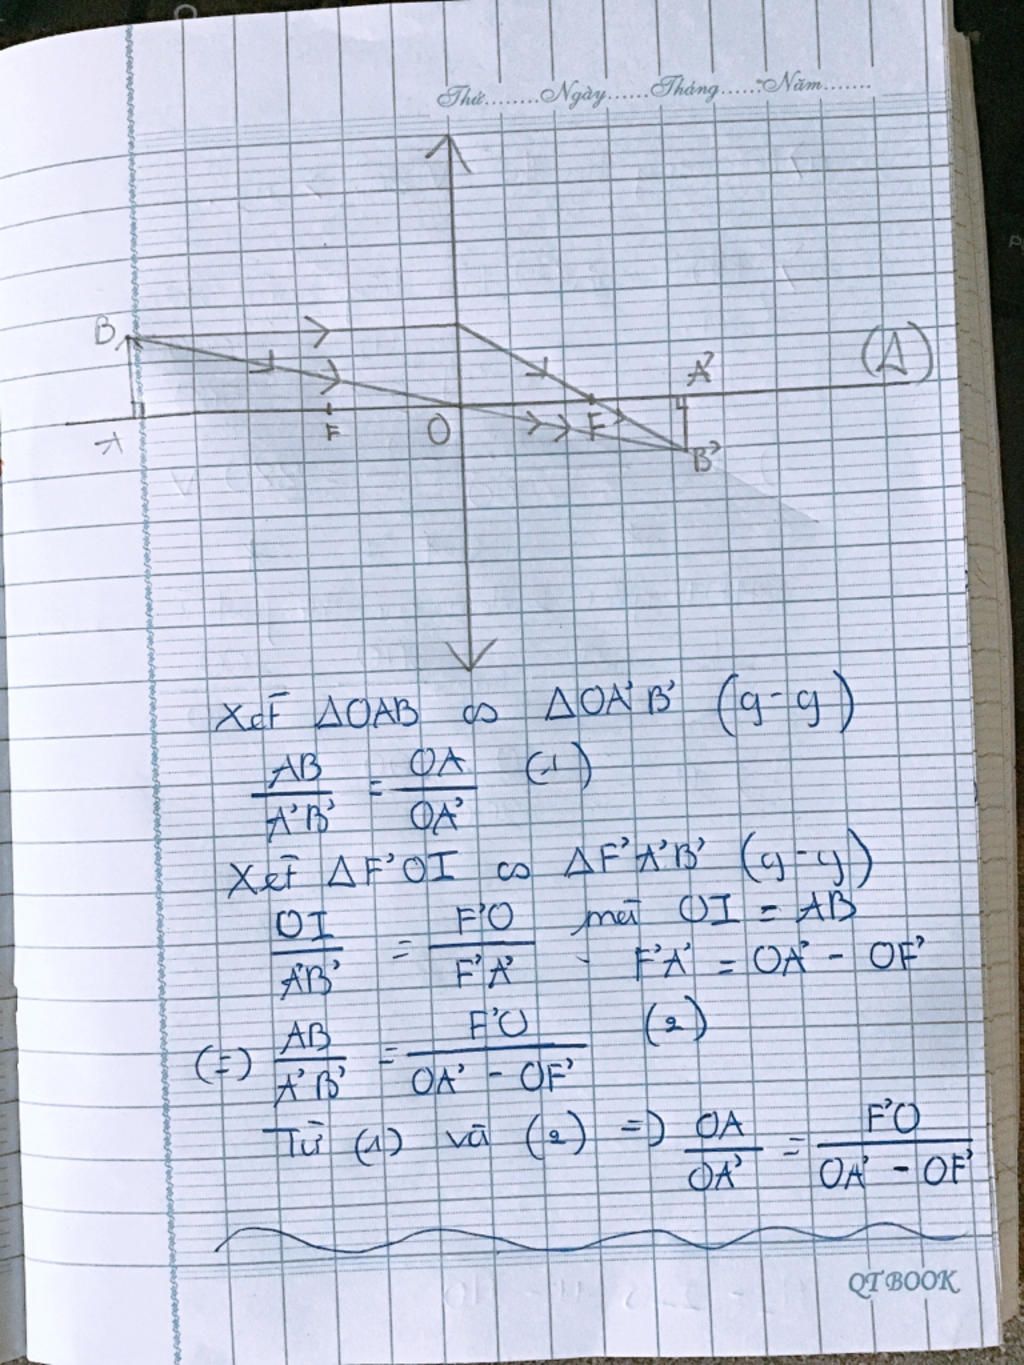 Thứ........Ngày......Tháng......Năm.......
B
A'
(Δ)
A
F
O
F
B'
Xét ΔOAB ∽ ΔOA'B' (g-g)
AB/A'B' = OA/OA' (1)
Xét ΔF'OI ∽ ΔF'A'B' (g-g)
OI/A'B' = F'O/F'A' mà OI = AB
F'A' = OA' - OF'
(=) AB/A'B' = F'O/OA' - OF' (2)
Từ (1) và (2) => OA/OA' = F'O/OA' - OF'
QT BOOK